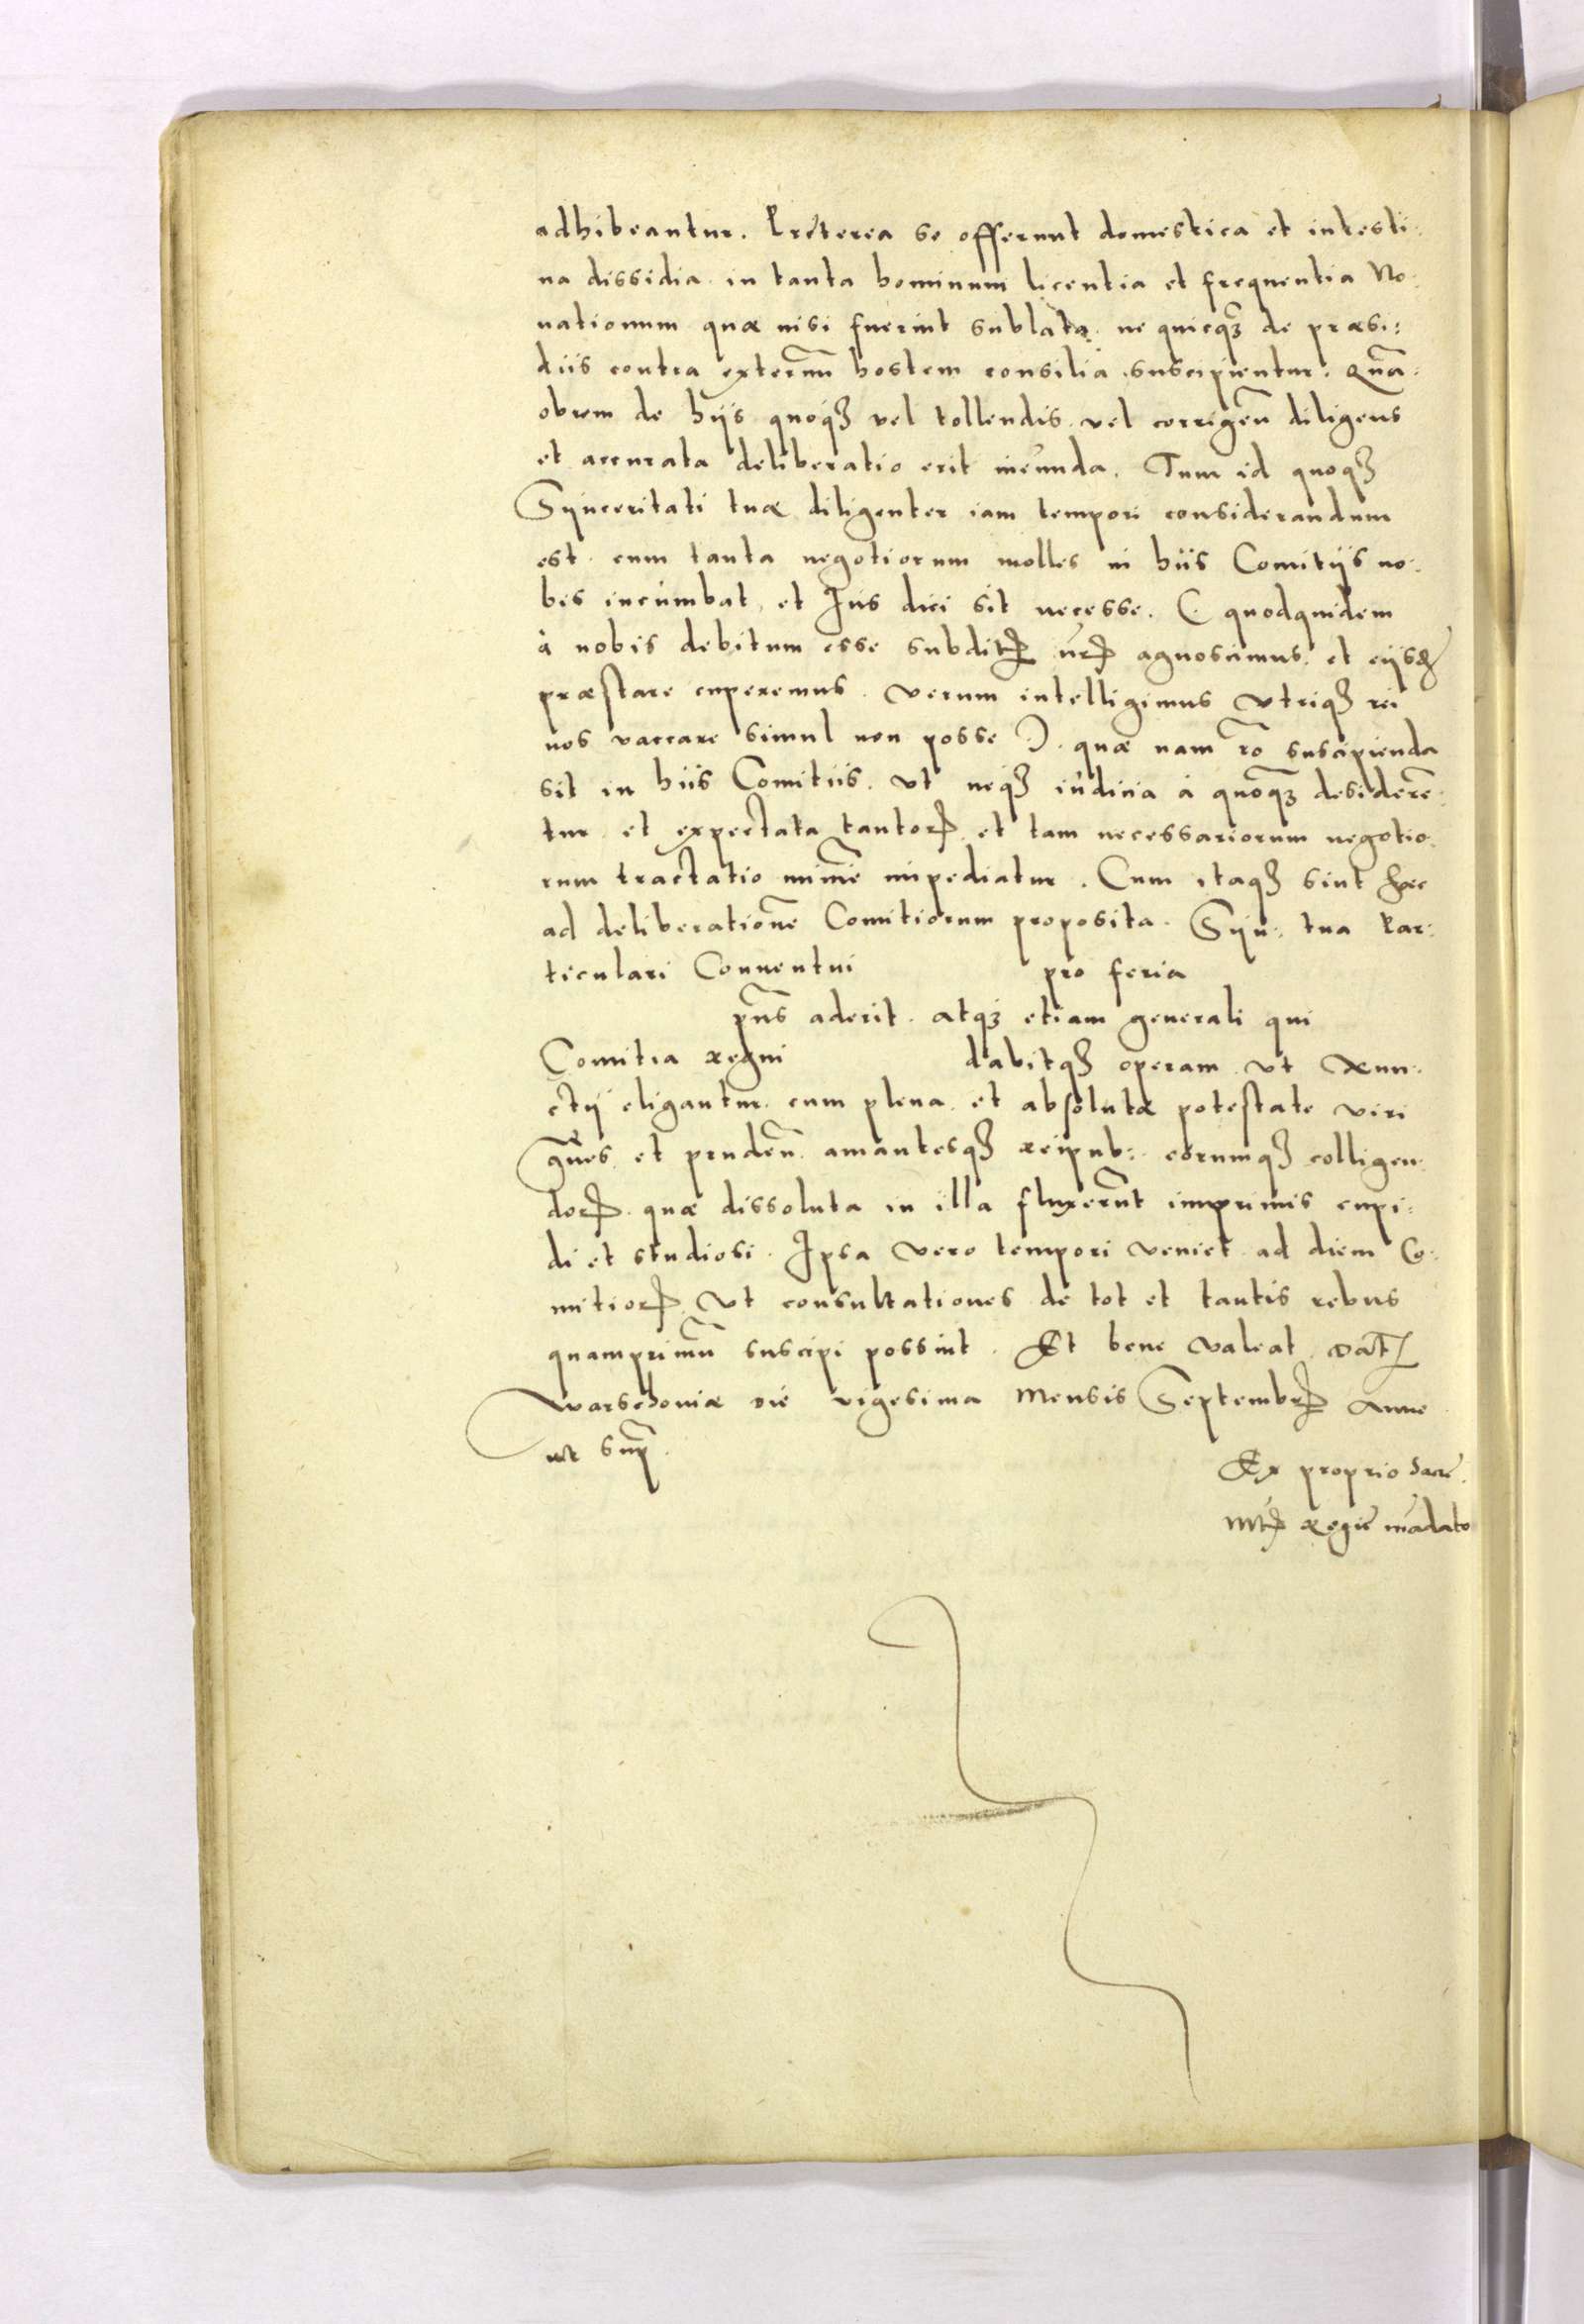 adhibeantur. Preterea se offerunt domestica et intesti:
na dissidia in tanta hominum licentia et frequentia No:
uationum quæ nisi fuerint sublata, ne quicq₃ de præsi:
diis contra externũ hostem consilia suscipientur. Quã:
obrem de hijs quoqꝫ vel tollendis vel corrigeñ diligens
et accurata deliberatio erit ineunda. Tum id quoqꝫ
Synceritati tuæ diligenter iam tempori considerandum
est cum tanta negotiorum molles in hiis Comitijs no:
bis incumbat, et Jus dici sit necesse. ( quodquidem
à nobis debitum esse subditꝝ nrꝝ agnoscimus, et eijsꝫ
præstare cuperemus. verum intelligimus vtriqꝫ rei
nos vaccare simul non posse ). quæ nam rõ suscipienda
sit in hiis Comitiis. vt neqꝫ iudicia à quoq₃ desiderẽ:
tur et expectata tantorꝝ et tam necessariorum negotio:
rum tractatio minime impediatur. Cum itaqꝫ sint hæc
ad deliberationẽ Comitiorum proposita. Syn: tua Par:
ticulari Conuentui pro feria
pñs aderit. atqꝫ etiam generali qui
Comitia regni dabitqꝫ operam vt Nun:
ctij eligantur cum plena et absoluta potestate viri
grẽs et prudeñ amantesqꝫ reipub: eorumqꝫ colligen:
dorꝝ quæ dissoluta in illa fluxerũt imprimis cupi:
di et studiosi. Ipsa vero tempori veniet ad diem Co:
mitiorꝝ Vt consultationes de tot et tantis rebus
quamprimũ suscipi possint. Et bene valeat. Dat̃
Warschouiæ die vigesima Mensis Septembrꝭ Anno
ut supͣ.
Ex proprio Sacrẽ.
Mtꝭ Regiẽ mãdato